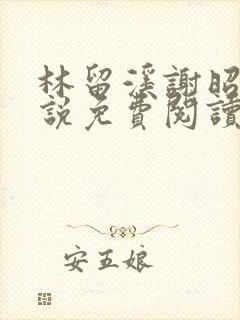 林留溪謝昭
說免費閱讀
安五娘